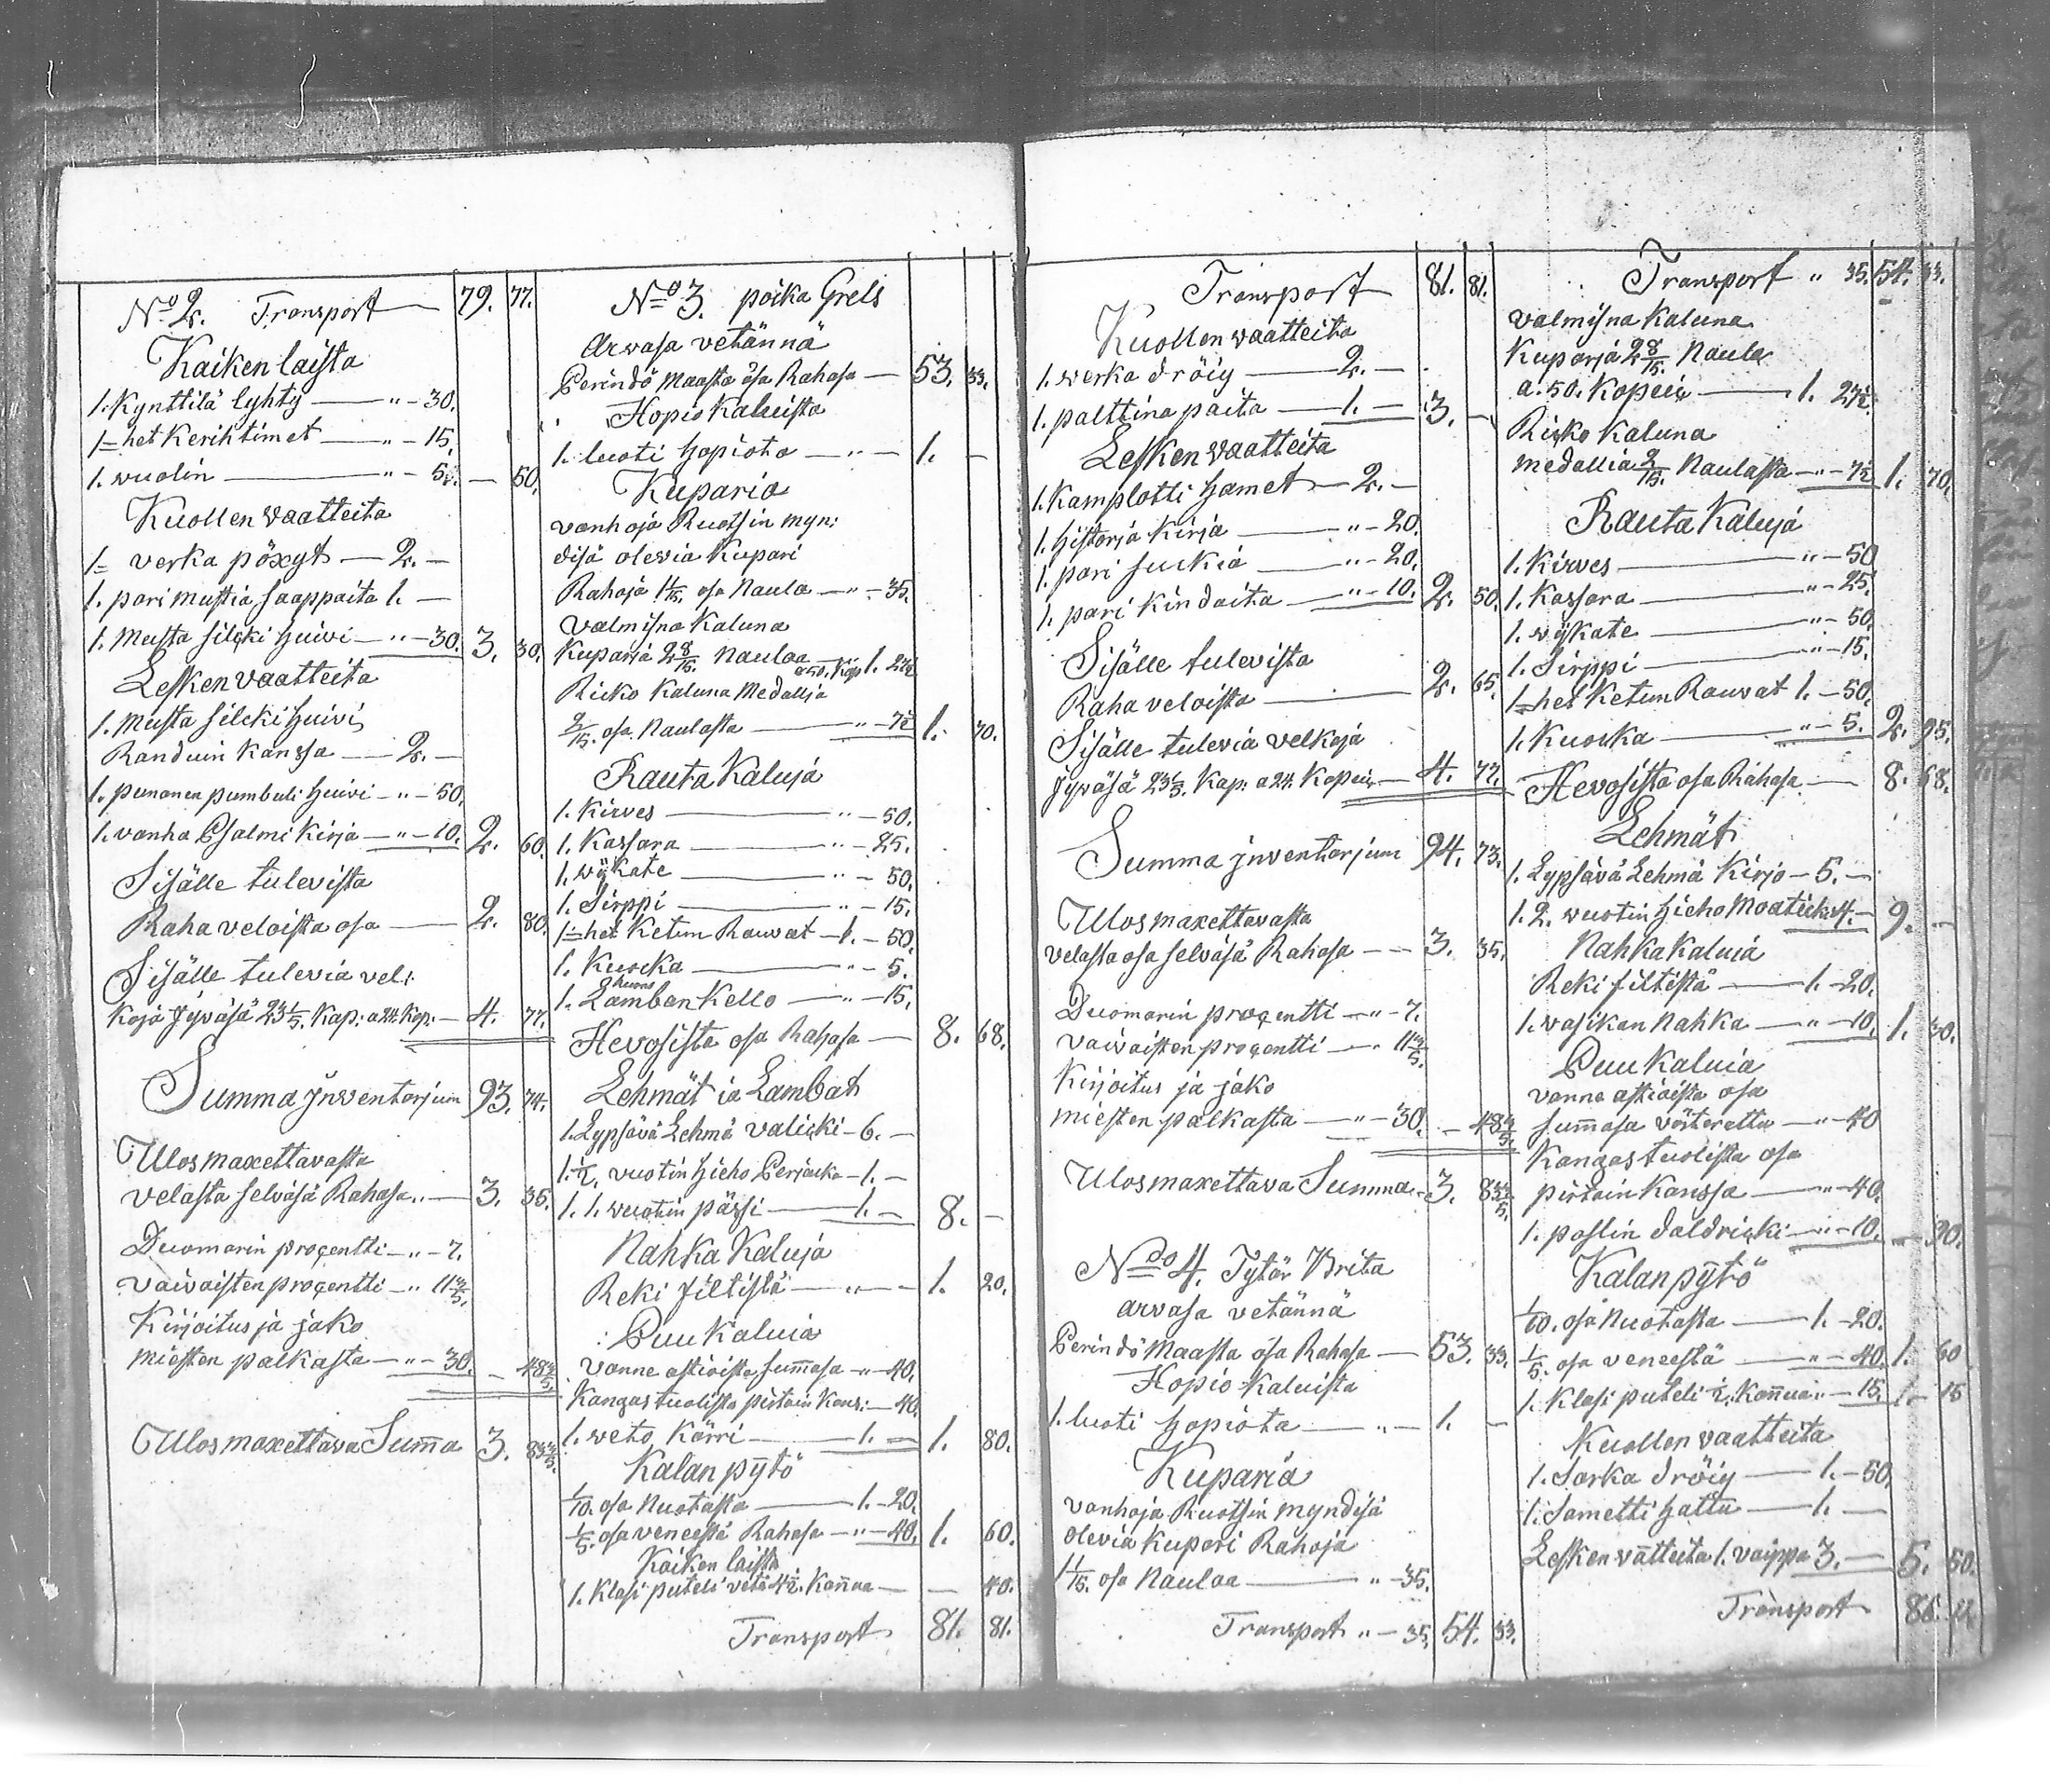 No 2. Transport — 79. 77.
Kaiken laista
1. Kynttilä lyhty — " — 30.
1= het Kerihtimet — " — 15.
1. wuolin — " — 5. — 50.
Kuollen waatteita
1= verka pöxyt — 2. —
1. pari mustia saappaita 1. —
1. musta silcki huivi — " — 30. 3. 30.
Lesken vaatteita
1. musta silcki huivi
Randuin kanssa — 2. —
1. punanen pumbuli huivi — " — 50.
1. vanha Psalmi kirja — " — 10. 2. 60.
Sisälle tulevista
Raha veloista osa — 2. 80.
Sisälle tulevia vel:
koja Jyväsä 23 1/5. Kap: a 24. Kop: — 4. 77.
Summa jnventarjum 93. 74.
Ulosmaxettavasta
velasta selväsä Rahasa " — 3. 35.
Duomarin procentti — " — 7.
vaivaisten procentti — " 11 4/5.
Kirjoitus ja jako
miesten palkasta — " — 30. — 48 4/5.
Ulosmaxettava Summa 3. 83 4/5.
No 3. poika Grels
Arwasa vetännä
Perindö Maasta osa Rahasa — 53. 33.
Hopio Kaluista
1. luoti hopiota — " — 1. —
Kuparia
vanhoja Ruotsin myn:
disä olevia Kupari
Rahoja 11/15. osa Naula — " — 35.
Valmisna Kaluna
Kuparia 2 8/15. Naulaa a 50. Kop 1. 27 1/2
Ricko Kaluna Medallja
2/15. osa Naulasta — " — 7 1/2 1. 70.
Rauta Kaluja
1. Kirves — " — 50.
1. Kassara — " — 25.
1. wijkate — " — 50.
1. Sirppi — " — 15.
1= het Ketun Rauvat — 1. — 50.
1. Kuocka — " — 5.
1. Lamban Kello — " — 15.
Hevosista osa Rahasa — 8. 68.
Lehmät ia Lambat
1. Lypsävä Lehmä valicki — 6. —
1. 1/2. vuotin hieho Perjacka — 1. —
1. 1. wuotin pässi — 1. — 8. —
Nahka Kaluja
Reki filtistä — " — 1. 20.
Puu Kaluia
Vanne astioista summasa — " 40.
Kangastuolista pirtain Kans: — 40.
1. weto Kärri — 1. — 1. 80.
Kalan pÿtö
1/10. osa Nuotasta — 1. — 20.
1/5. osa veneestä Rahasa — " — 40. 1. 60.
Kaiken laista
1. Klasi puteli vetä 4 1/2. Kannaa — — 40.
Transport 81. 81.
Transport 81. 81.
Kuollen waatteita
1. werka dröiy — 2. —
1. palttina paita — 1. — 3. —
Lesken waatteita
1. Kamplotti hamet — 2. —
1. historja Kirja — " — 20.
1. pari suckia — " — 20.
1. pari Kindaita — " — 10. 2. 50.
Sisälle tulevista
Raha veloista — 2. 65.
Sisälle tulevia velkoja
Jyväsä 23 1/5. Kap: a 24. Kopeic — 4. 77.
Summa jnventarjum 94. 73.
Ulosmaxettavasta
velasta osa selväsä Rahasa — 3. 35.
Duomarin procentti — " — 7.
vaivaisten procentti — " 11 4/5.
Kirjoitus ja jako
miesten palkasta — " — 30. — 48 4/5.
Ulosmaxettava Summa — 3. 83 4/5.
No 4. Tytär Brita
arvasa vetännä
Perindö Maasta osa Rahasa — 53. 33.
Hopio Kaluista
1. luoti hopiota — " — 1. —
Kuparia
vanhoja Ruotsin myndisä
olevia Kupari Rahoja
11/15. osa Naulaa — " — 35.
Transport " — 35. 54. 33.
Transport " 35. 54. 33.
valmisna Kaluna
Kuparja 2 8/15. Naulaa
a. 50. Kopeic — 1. 27 1/2.
Ricko Kaluna
medallia 2/15. Naulasta — " — 7 1/2 1. 70.
Rauta Kaluja
1. Kirves — " — 50
1. Kassara — " — 25.
1. wÿkate — " — 50.
1. Sirppi — " — 15.
1= het Ketun Rauvat 1. — 50.
1. Kuocka — " — 5. 2. 95.
Hevosista osa Rahasa — 8. 68.
Lehmät
1. Lypsävä Lehmä Kirjo — 5. —
1. 2. wuotin hieho Maaticki 4. — 9. —
Nahka kaluia
Reki filtistä — 1. — 20.
1. vasikan Nahka — " — 10. 1. 30.
Puu Kaluia
vanne astioista osa
summasa vörteretta — " — 40
Kangastuolista osa
pirtain Kanssa — " — 40.
1. paslin daldricki — " — 10. — 90.
Kalan pÿtö
1/10. osa Nuotasta — 1. — 20.
1/5. osa veneestä — " — 40. 1. 60
1. Klasi puteli 1/2. Kannua " — 15. — 15
Kuollen vaatteita
1. Sarka dröiy — 1. — 50.
1. Sametti hattu — 1. —
Lesken vätteita 1. vaippa 3. — 5. 50.
Transport